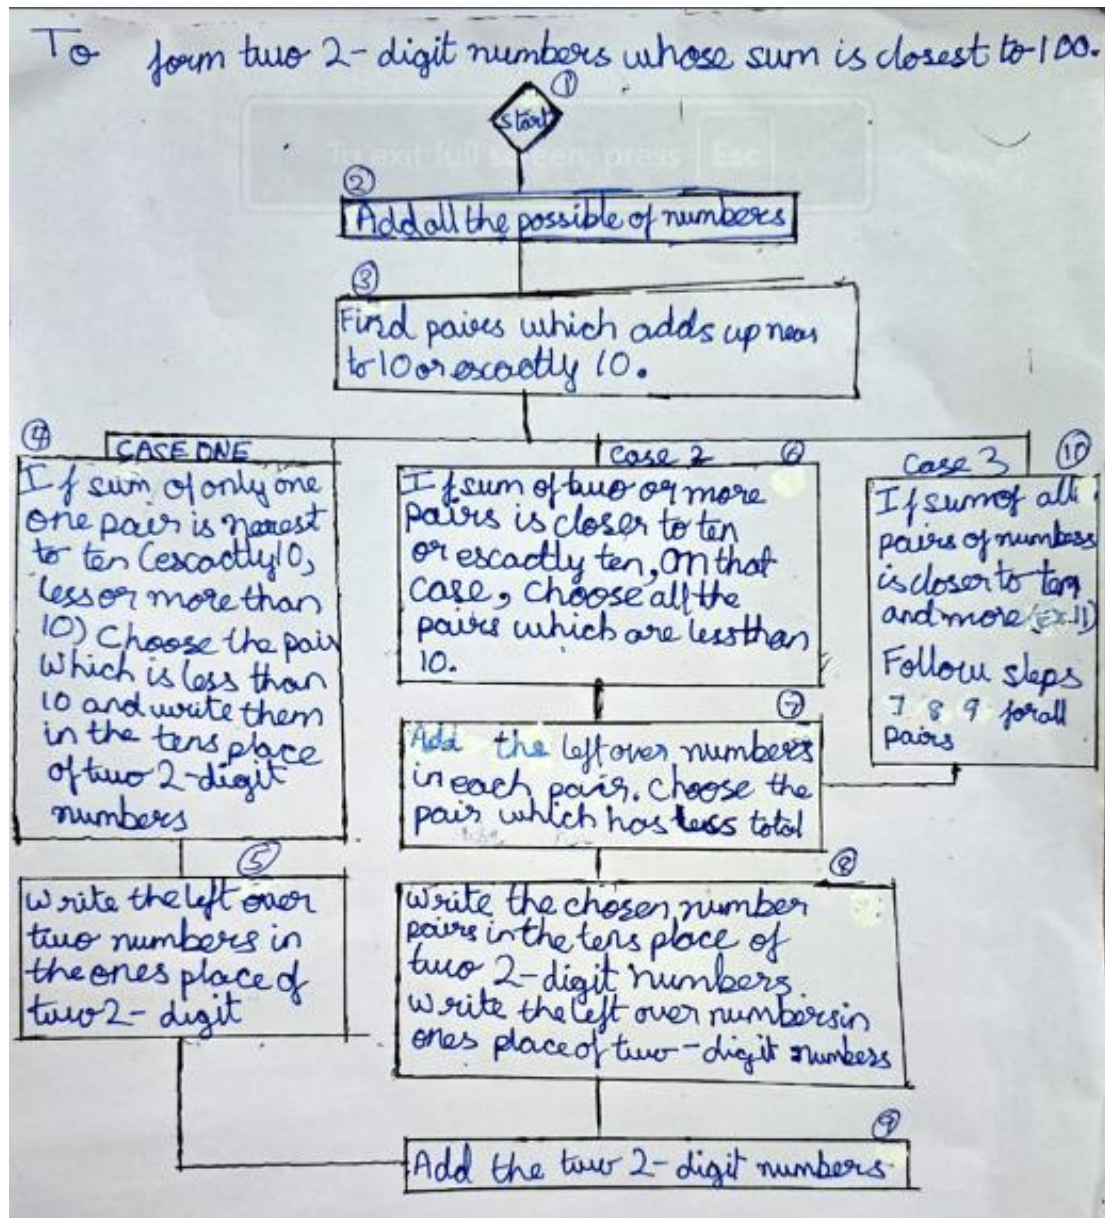 To form two 2-digit numbers whose sum is closest to 100.
①
Start
②
Add all the possible of numbers
③
Find pairs which adds up near
to 10 or escactly 10.
④
CASE ONE
If sum of only one
one pair is nerest
to ten (escactly 10,
less or more than
10) Choose the pair
which is less than
10 and write them
in the tens place
of two 2-digit
numbers
⑤
write the left over
two numbers in
the ones place of
two 2-digit
Case 2
⑥
If sum of two or more
pairs is closer to ten
or escactly ten, On that
case, Choose all the
pairs which are less than
10.
⑦
Add the left over numbers
in each pair. Choose the
pair which has less total
⑧
write the chosen number
pairs in the tens place of
two 2-digit numbers
write the left over numbers in
ones place of two-digit numbers
⑨
Add the two 2-digit numbers
Case 3
⑩
If sum of all
pairs of numbers
is closer to ten
and more (Ex.11)
Follow steps
7 8 9 for all
pairs
To exit full screen, press Esc